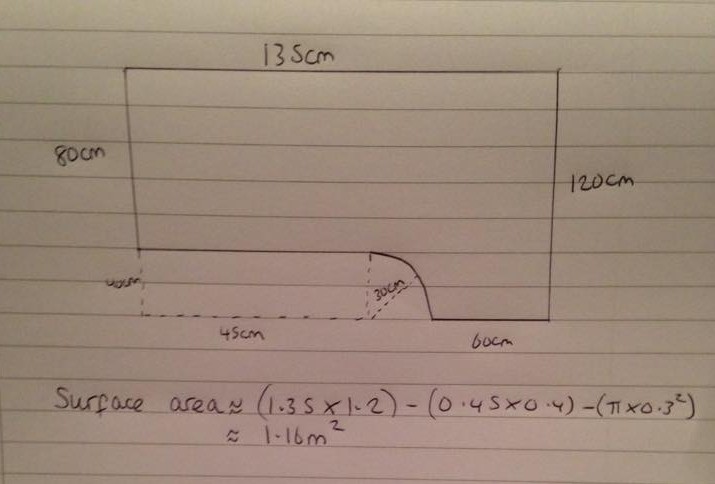 135cm
80cm
120cm
40cm
30cm
45cm
60cm
Surface area ≈ (1.35 × 1.2) - (0.45 × 0.4) - (π × 0.3²)
≈ 1.16m²